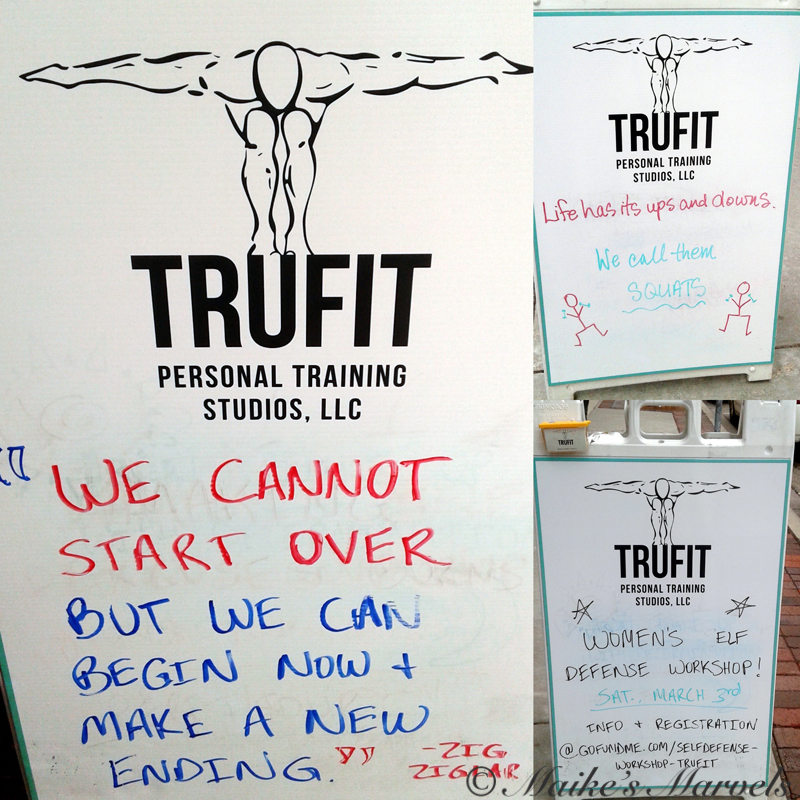 TRUFIT
PERSONAL TRAINING
STUDIOS, LLC
"WE CANNOT
START OVER
BUT WE CAN
BEGIN NOW +
MAKE A NEW
ENDING."
-ZIG
ZIGLAR
TRUFIT
PERSONAL TRAINING
STUDIOS, LLC
Life has its ups and downs.
We call them
SQUATS
TRUFIT
TRUFIT
PERSONAL TRAINING
STUDIOS, LLC
WOMEN'S ELF
DEFENSE WORKSHOP!
SAT., MARCH 3rd
INFO + REGISTRATION
@ GOFUNDME.COM/SELFDEFENSE-
WORKSHOP-TRUFIT
© Maike's Marvels